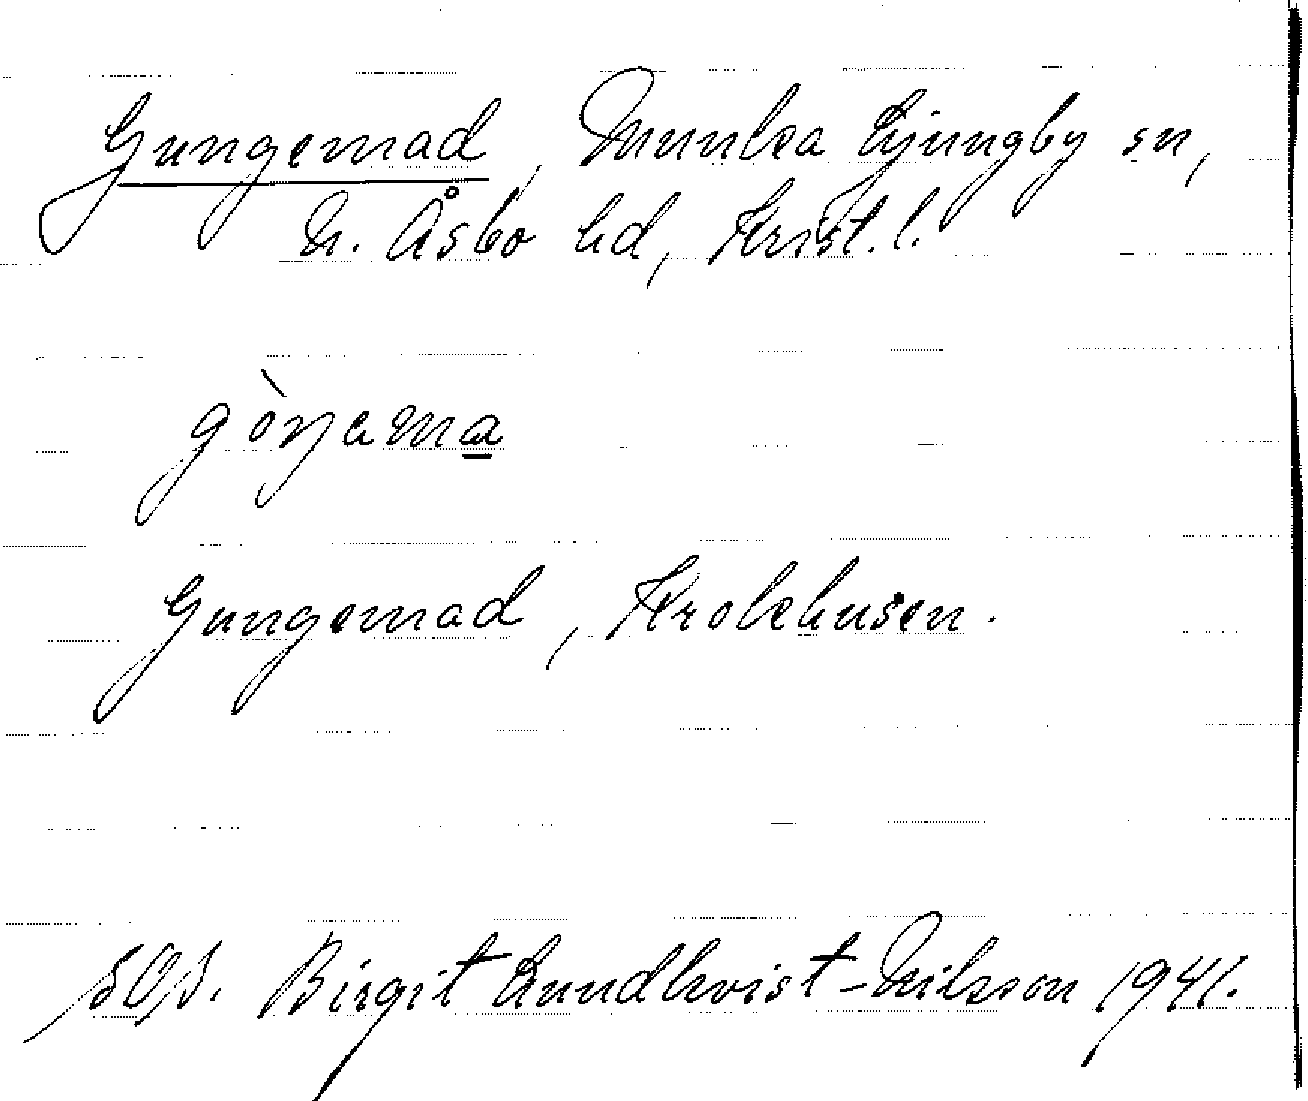 Gungemad, Munka Ljungby sn,
N. Åsbo hd, Krist. l.
gòŋama
Gungemad, Krokhusen.
SOS. Birgit Lundkvist-Nilsson 1941.